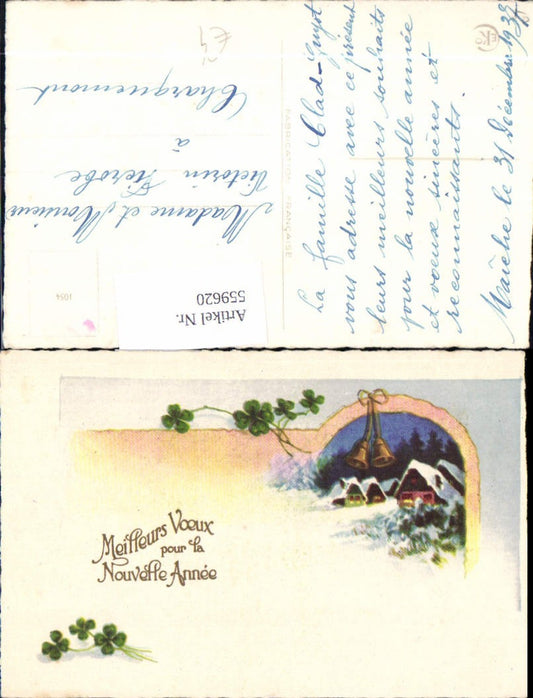 Maîche le 31 Décembre 1939
La famille Clad-Guyot
vous adresse avec ce présent
leurs meilleurs souhaits
pour la nouvelle année
et voeux sincères et
reconnaissants.
FABRICATION FRANÇAISE
Madame et Monsieur
Victorin
à
Charquemont
1054
Artikel Nr.
559620
Meilleurs Vœux
pour la
Nouvelle Année